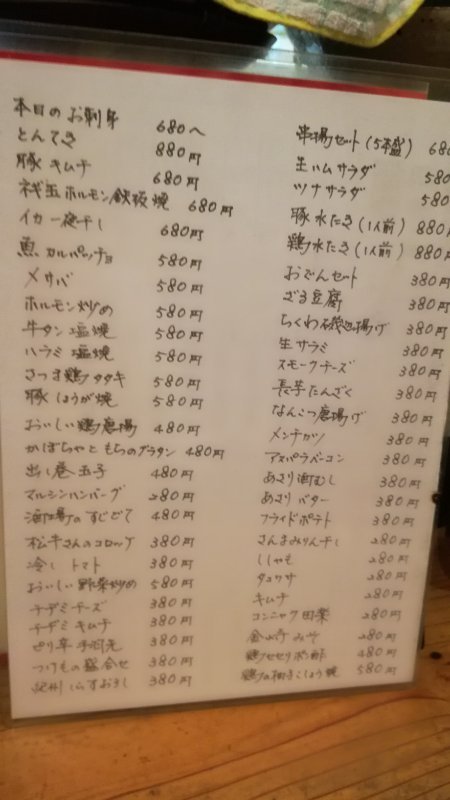 本日のお刺身 680〜
とんてき 880円
豚キムチ 680円
ホルモン鉄板焼 680円
イカ一夜干し 680円
魚カルパッチョ 580円
〆サバ 580円
ホルモン炒め 580円
牛タン塩焼 580円
ハラミ塩焼 580円
さつま鶏タタキ 580円
豚しょうが焼 580円
おいしい鶏唐揚 480円
かぼちゃともちのグラタン 480円
出し巻玉子 480円
マルシンハンバーグ 280円
酒場のすじどて 480円
松牛さんのコロッケ 380円
冷しトマト 380円
おいしい野菜炒め 580円
チヂミチーズ 380円
チヂミキムチ 380円
ピリ辛手羽先 380円
つけもの盛合せ 380円
紀州しらすおろし 380円
串揚セット(5本盛) 680
生ハムサラダ 580
ツナサラダ 580
豚水たき(1人前) 880円
鶏水たき(1人前) 880円
おでんセット 380円
ざる豆腐 380円
ちくわ磯辺揚げ 380円
生サラミ 380円
スモークチーズ 380円
長芋たんざく 380円
なんこつ唐揚げ 380円
メンチカツ 380円
アスパラベーコン 380円
あさり酒むし 380円
あさりバター 380円
フライドポテト 380円
さんまみりん干し 280円
ししゃも 280円
タコワサ 280円
キムチ 280円
コンニャク田楽 280円
金山寺みそ 280円
鶏セセリポン酢 480円
鶏の柚子こしょう焼 580円